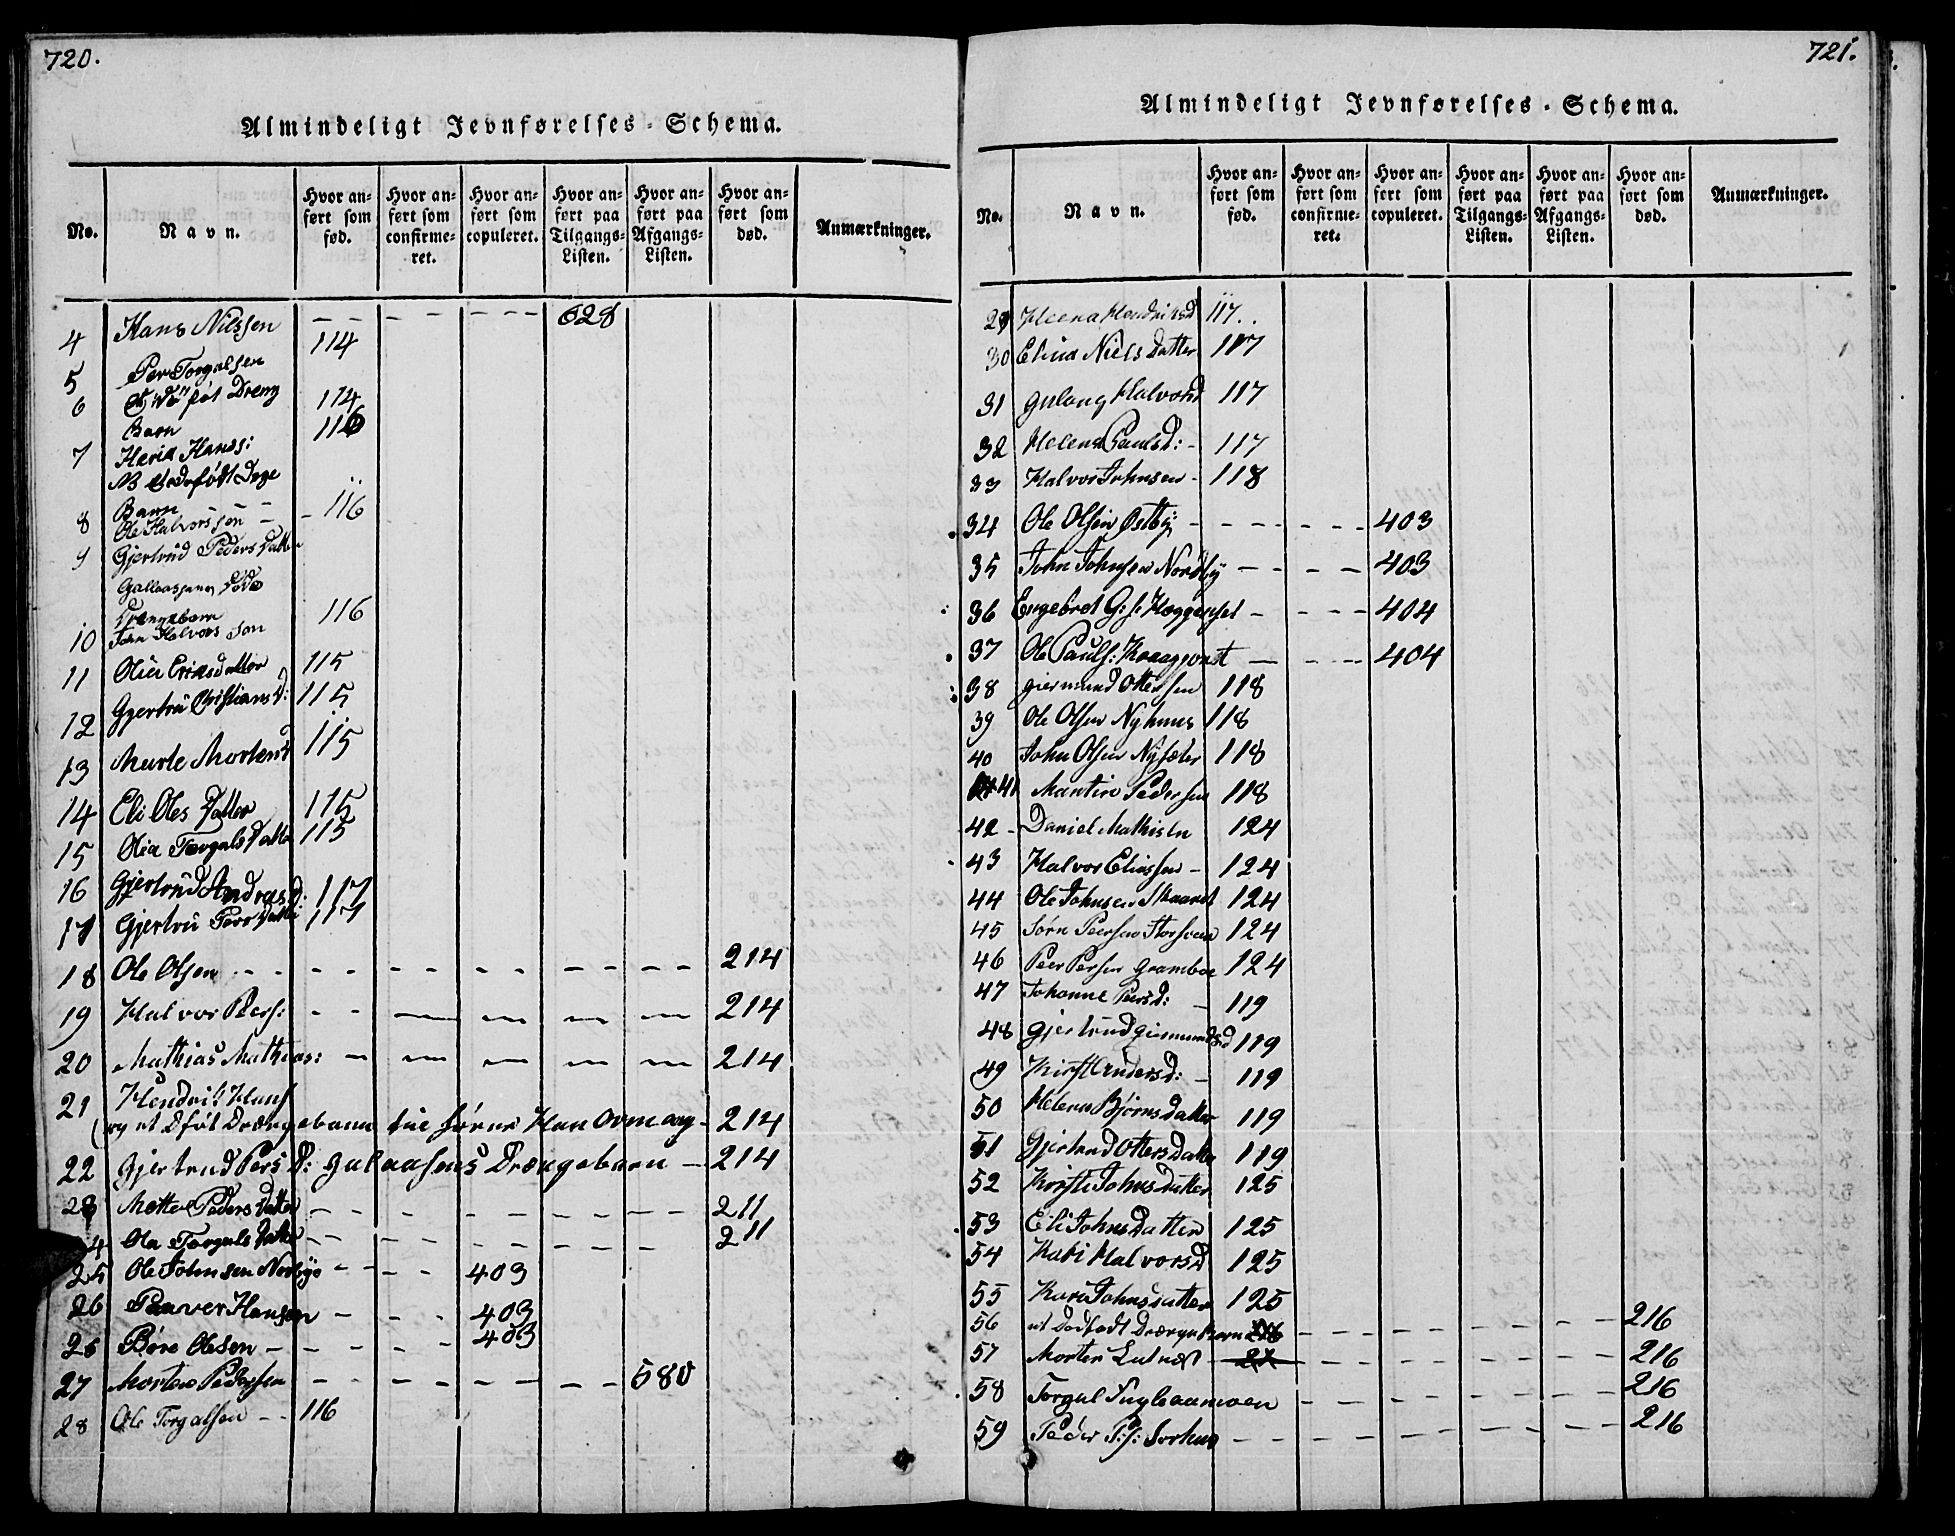 720.
Almindeligt Jevnførelses-Schema.
No. Navn. Hvor anført som fød. Hvor anført som confirmeret. Hvor anført som copuleret. Hvor anført paa Tilgangs-Listen. Hvor anført paa Afgangs-Listen. Hvor anført som død. Anmærkninger.
4 Hans Nilssen 628
5 Per Torgalsen 114
6 Dreng
Barn 114
7 Hans: 116
NB
8 Barn
Ole Halvorssen 116
9 Gjertrud Peders Datter
Drengebarn
10 John Halvorsson 116
11 Olia Eriksdatter 115
12 Gjertru Christians D: 115
13 Marte Mortensd 115
14 Eli Oles Datter 115
15 Olia Torgals Datter 115
16 Gjertrud Andreas D: 117
17 Gjertru Peers Datter 117
18 Ole Olsen 214
19 Halvor Peers: 214
20 Mathias Mathias: 214
21 Hendrik Hans
214
22 Gjertrud Pers D: Galaasens Drængebarn 214
23 Mette Peders Datter 211
Ola Torgals Datter 211
25 Ole Johnsen Norbye 403
26 Hansen 403
26 Børe Olesen 403
27 Morten Pedersen 580
28 Ole Torgalsen 116
721.
Almindeligt Jevnførelses-Schema.
No. Navn. Hvor anført som fød. Hvor anført som confirmeret. Hvor anført som copuleret. Hvor anført paa Tilgangs-Listen. Hvor anført paa Afgangs-Listen. Hvor anført som død. Anmærkninger.
29 117
30 Elina Niels Datter 117
31 Gulaug Halvorsd 117
32 Helena Paulsd: 117
33 Halvor Johnsen 118
34 Ole Olsen Østby 403
35 John Johnsen Nordby 403
36 Engebret G:s: 404
37 Ole Pauls: 404
38 Giermund Ottersen 118
39 Ole Olsen Nyhuus 118
40 John Olsen Nysæter 118
41 Martin Pedersen 118
42 Daniel Mathisen 124
43 Halvor Eliassen 124
44 Ole Johnsen 124
45 Peersen 124
46 Peer Persen Gramboe 124
47 Johanne Peersd: 119
48 Gjertrud Giermundsd 119
49 Kirsti Andersd: 119
50 Helena Bjørnsdatter 119
51 Gjertrud Ottersdatter 119
52 Kirsti Johnsdatter 125
53 Eli Johnsdatter 125
54 Kari Halvorsd 125
55 Kari Johnsdatter 125
56 et Dødfødt Drænge Barn 216
57 Morten 216
58 Torgal 216
59 Peder P:s: Sorhus 216